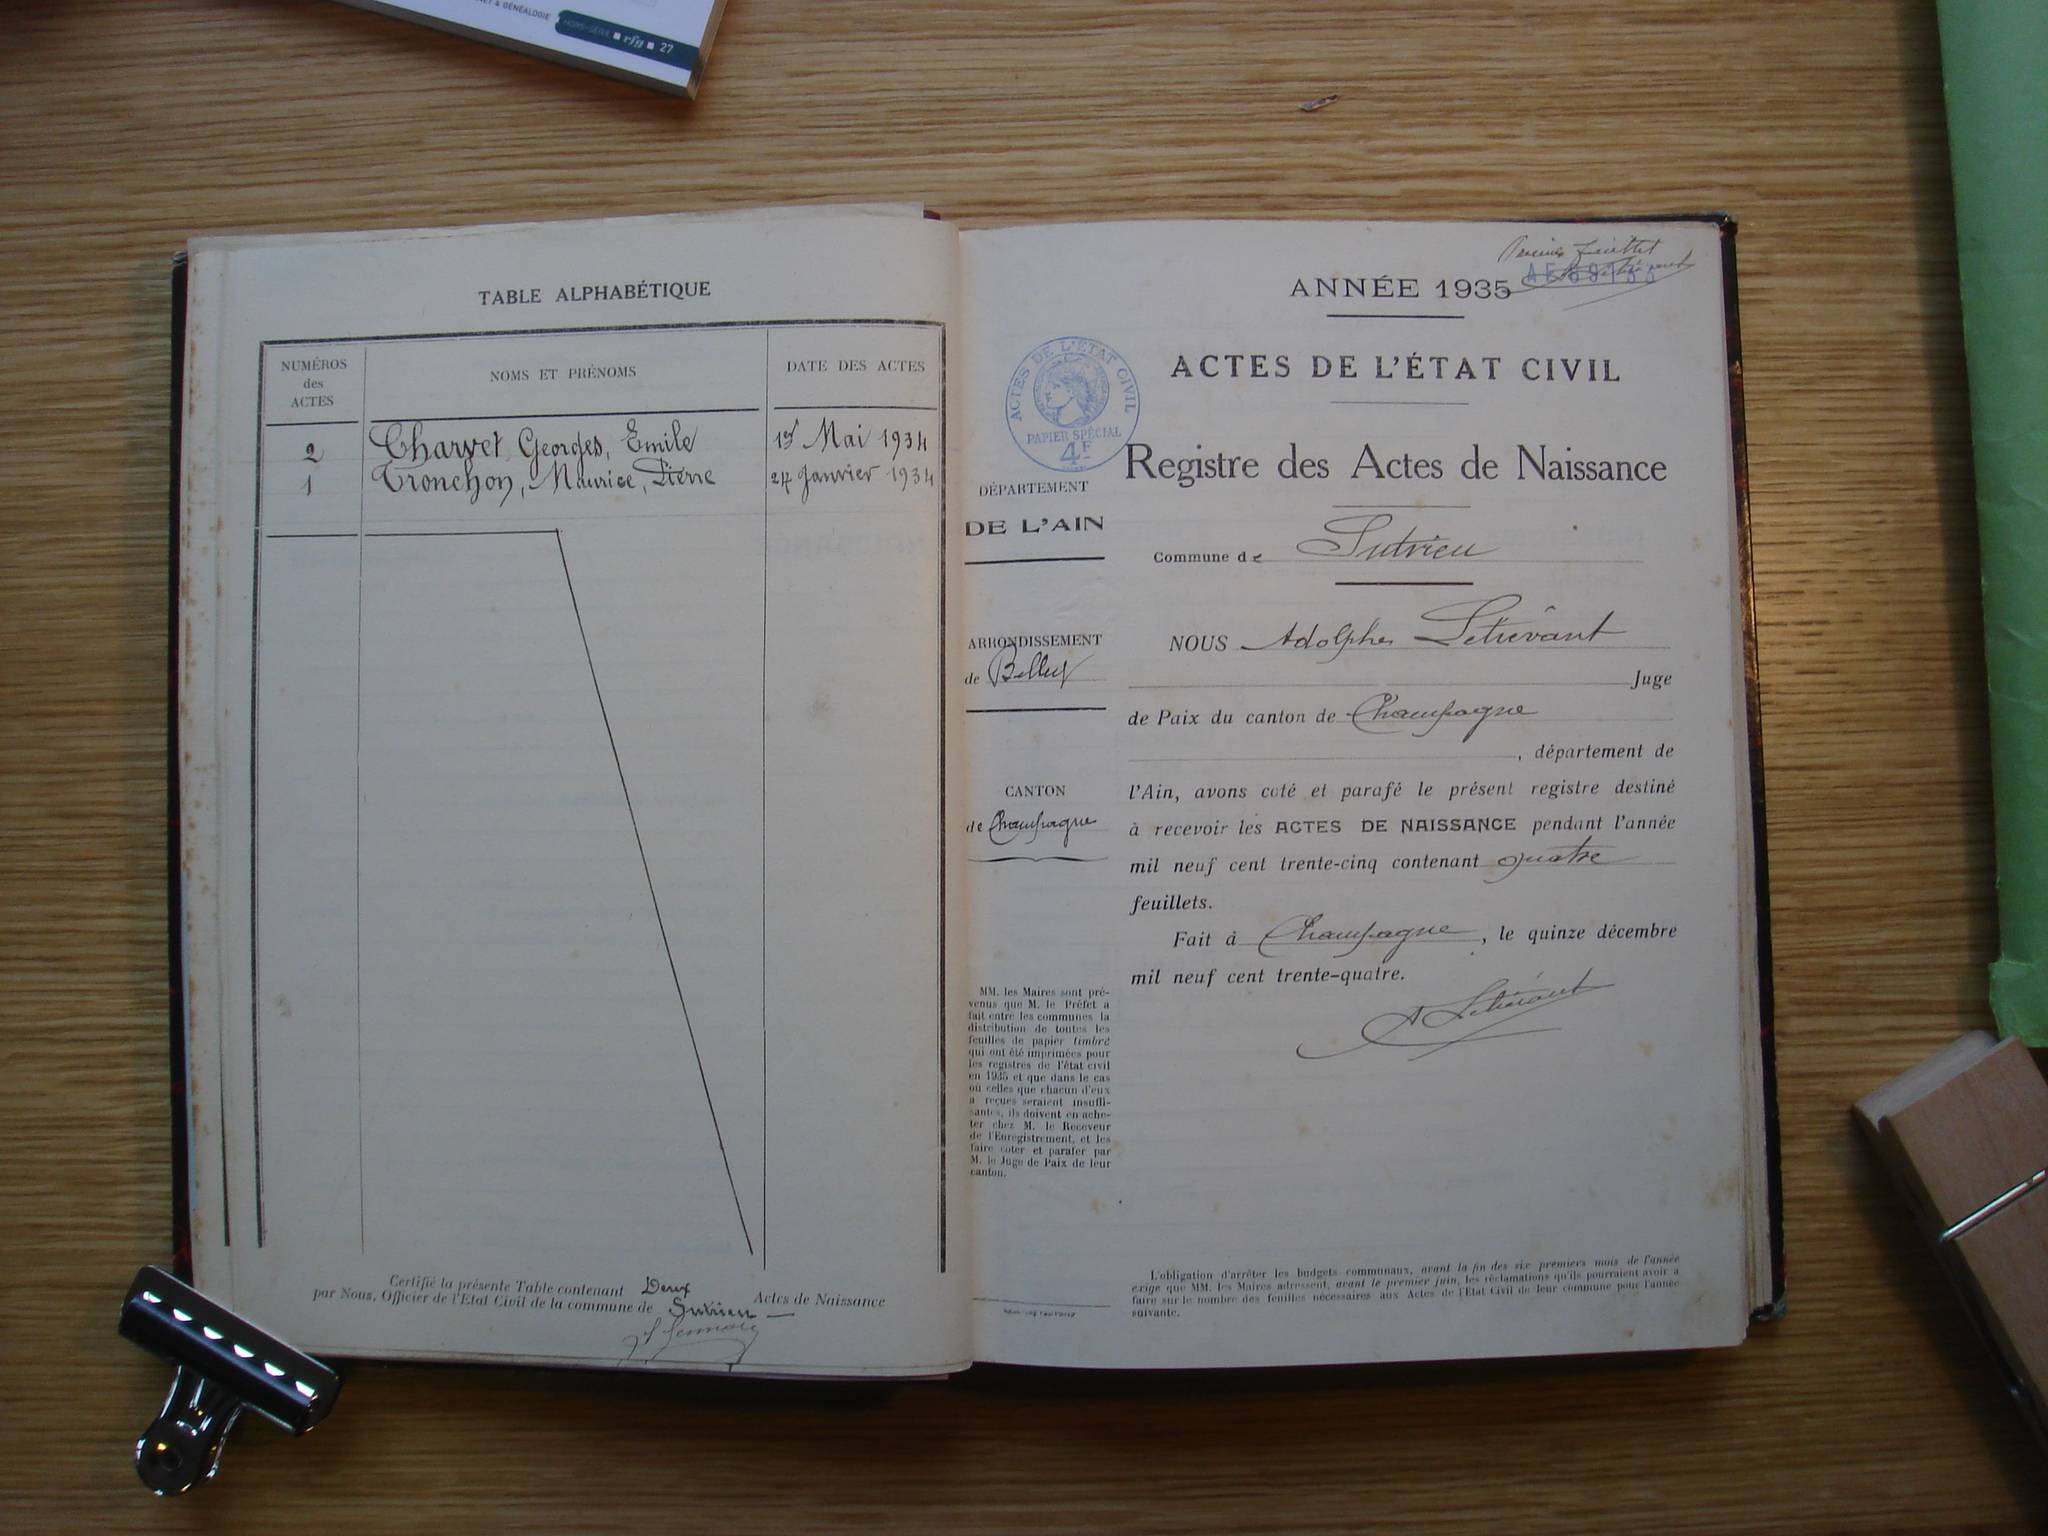 NET & GÉNÉALOGIE
HORS-SÉRIE ■ rfg ■ 27
TABLE ALPHABÉTIQUE
NUMÉROS
des
ACTES
NOMS ET PRÉNOMS
DATE DES ACTES
2 Charvet, Georges, Emile 1er Mai 1934
1 Tronchon, Maurice, Pierre 24 Janvier 1934
Certifié la présente Table contenant Deux Actes de Naissance
par Nous, Officier de l'Etat Civil de la commune de Sutrieu
Premier feuillet
ANNÉE 1935
ACTES DE L'ÉTAT CIVIL
ACTES DE L'ÉTAT CIVIL
PAPIER SPÉCIAL
4F
Registre des Actes de Naissance
DÉPARTEMENT
DE L'AIN
Commune de Sutrieu
ARRONDISSEMENT
de Belley
CANTON
de Champagne
NOUS Adolphe Létiévant
Juge
de Paix du canton de Champagne
, département de
l'Ain, avons coté et parafé le présent registre destiné
à recevoir les ACTES DE NAISSANCE pendant l'année
mil neuf cent trente-cinq contenant quatre
feuillets.
Fait à Champagne, le quinze décembre
mil neuf cent trente-quatre.
A Létiévant
MM. les Maires sont pré-
venus que M. le Préfet a
fait entre les communes la
distribution de toutes les
feuilles de papier timbré
qui ont été imprimées pour
les registres de l'état civil
en 1935 et que dans le cas
où celles que chacun d'eux
a reçues seraient insuffi-
santes, ils doivent en ache-
ter chez M. le Receveur
de l'Enregistrement, et les
faire coter et parafer par
M. le Juge de Paix de leur
canton.
L'obligation d'arrêter les budgets communaux, avant la fin des six premiers mois de l'année
exige que MM. les Maires adressent, avant le premier juin, les réclamations qu'ils pourraient avoir à
faire sur le nombre des feuilles nécessaires aux Actes de l'Etat Civil de leur commune pour l'année
suivante.